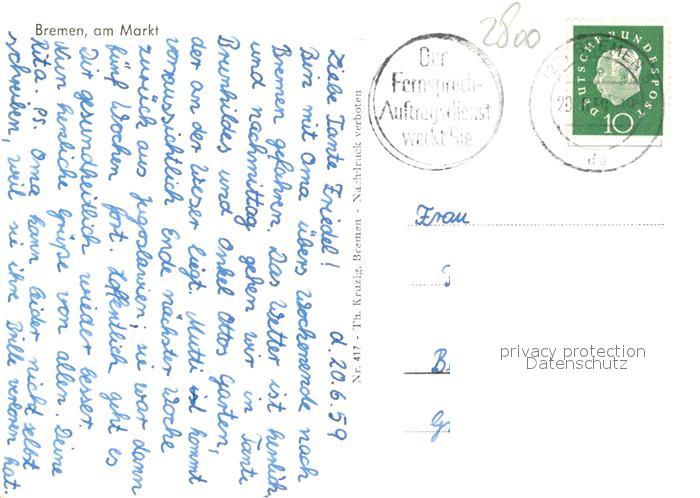 Bremen, am Markt
d. 20.6.59
Liebe Tante Friedel!
Bin mit Oma übers Wochenende nach
Bremen gefahren. Das Wetter ist herrlich
und nachmittag gehen wir in Tante
Brunhildes und Onkel Ottos Garten,
der an der Weser liegt. Mutti kommt
voraussichtlich Ende nächster Woche
zurück aus Jugoslawien, sie war dann
fünf Wochen fort. Hoffentlich geht es
Dir gesundheitlich wieder besser.
Nun herzliche Grüße von allen. Deine
Rita. PS. Oma kann leider nicht selbst
schreiben, weil sie ihre Brille verloren hat.
Nr. 417 - Th. Kruzig, Bremen - Nachdruck verboten
2800
Der
Fernsprech-
Auftragsdienst
weckt Sie
BREMEN
da
DEUTSCHE BUNDESPOST
10
Frau
B
G
privacy protection
Datenschutz